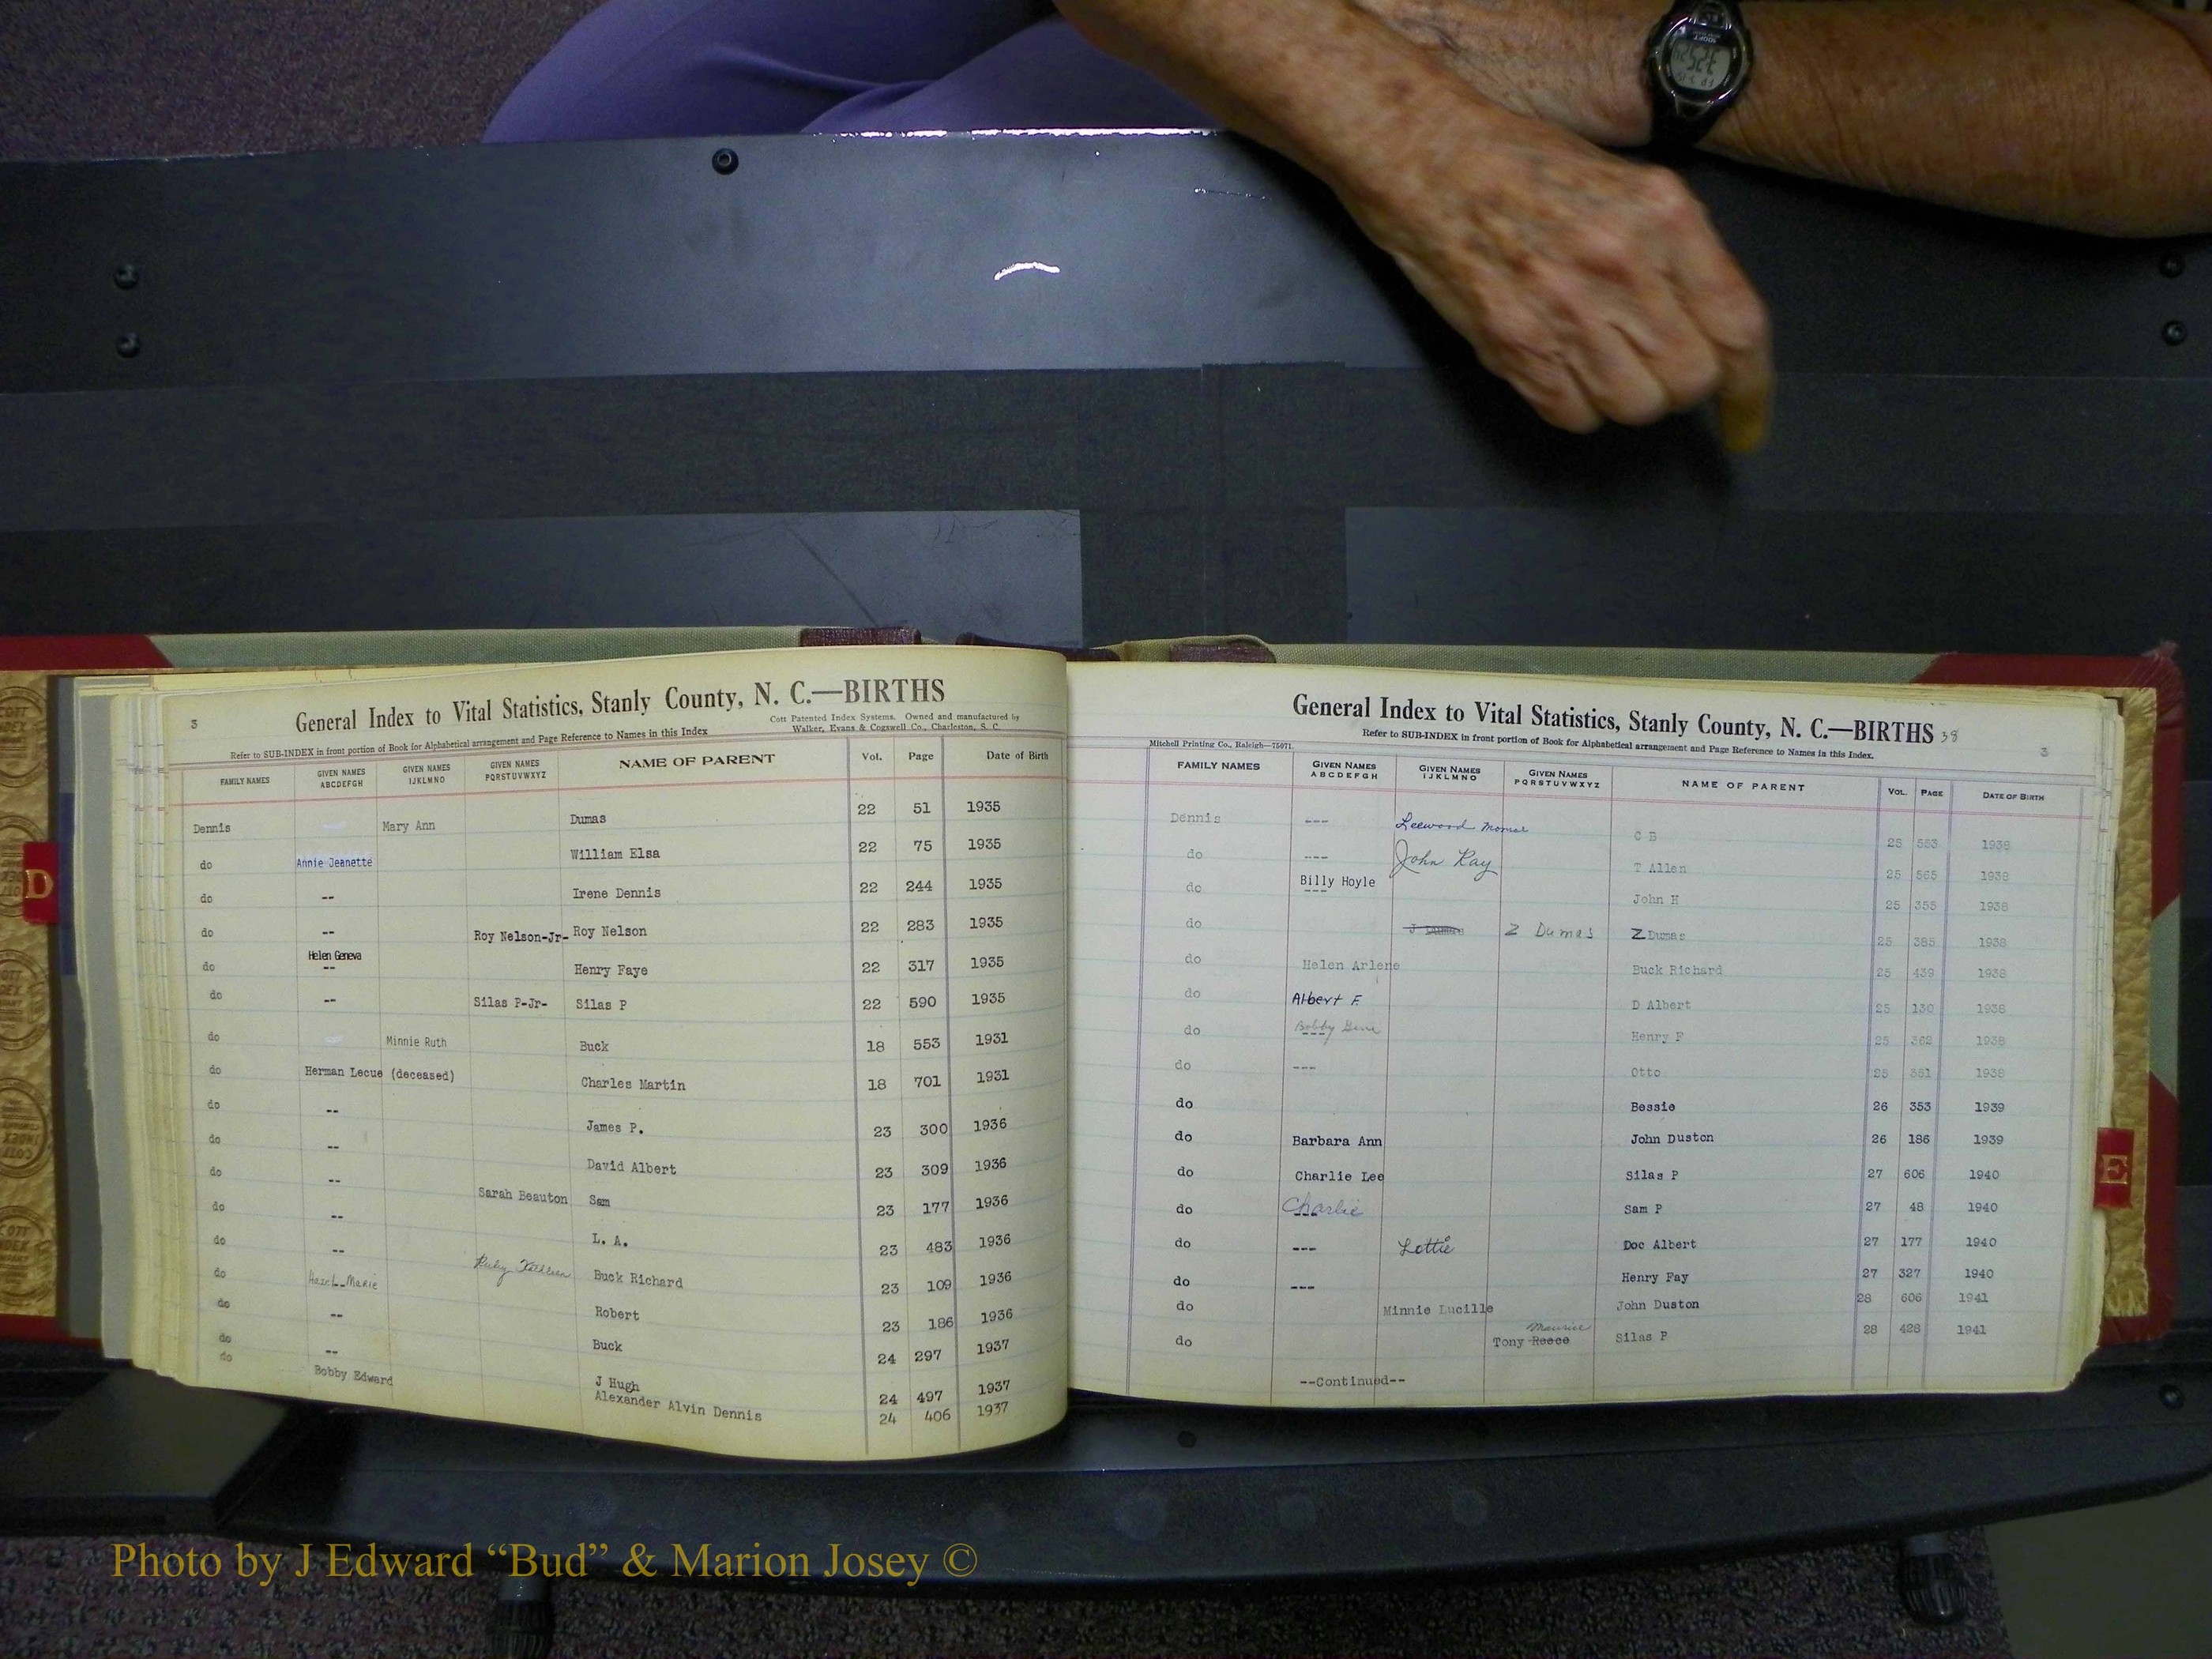 3
General Index to Vital Statistics, Stanly County, N. C.—BIRTHS
Cott Patented Index Systems. Owned and manufactured by
Walker, Evans & Cogswell Co., Charleston, S. C.
Refer to SUB-INDEX in front portion of Book for Alphabetical arrangement and Page Reference to Names in this Index
FAMILY NAMES GIVEN NAMES ABCDEFGH GIVEN NAMES IJKLMNO GIVEN NAMES PQRSTUVWXYZ NAME OF PARENT Vol. Page Date of Birth
Dennis Mary Ann Dumas 22 51 1935
do Annie Jeanette William Elsa 22 75 1935
do -- Irene Dennis 22 244 1935
do -- Roy Nelson-Jr- Roy Nelson 22 283 1935
do Helen Geneva -- Henry Faye 22 317 1935
do -- Silas P-Jr- Silas P 22 590 1935
do Minnie Ruth Buck 18 553 1931
do Herman Lecue (deceased) Charles Martin 18 701 1931
do -- James P. 23 300 1936
do -- David Albert 23 309 1936
do -- Sarah Beauton Sam 23 177 1936
do -- L. A. 23 483 1936
do -- Ruby Kathleen Buck Richard 23 109 1936
do Hazel Marie Robert 23 186 1936
do -- Buck 24 297 1937
do -- J Hugh 24 497 1937
do Bobby Edward Alexander Alvin Dennis 24 406 1937
D
General Index to Vital Statistics, Stanly County, N. C.—BIRTHS 38
Refer to SUB-INDEX in front portion of Book for Alphabetical arrangement and Page Reference to Names in this Index.
3
Mitchell Printing Co., Raleigh—75071
FAMILY NAMES GIVEN NAMES ABCDEFGH GIVEN NAMES IJKLMNO GIVEN NAMES PQRSTUVWXYZ NAME OF PARENT VOL. PAGE DATE OF BIRTH
Dennis --- Leewood C B 25 553 1938
do --- John Ray T Allen 25 565 1938
do Billy Hoyle --- John H 25 355 1938
do J Dumas Z Dumas Z Dumas 25 385 1938
do Helen Arlene Buck Richard 25 439 1938
do Albert F. D Albert 25 130 1938
do Bobby Gene --- Henry F 25 362 1938
do --- Otto 25 381 1938
do Bessie 26 353 1939
do Barbara Ann John Duston 26 186 1939
do Charlie Lee Silas P 27 606 1940
do Charlie --- Sam P 27 48 1940
do --- Lottie Doc Albert 27 177 1940
do --- Henry Fay 27 327 1940
do Minnie Lucille John Duston 28 606 1941
do Tony Reece Maurice Silas P 28 428 1941
--Continued--
E
Photo by J Edward “Bud” & Marion Josey ©